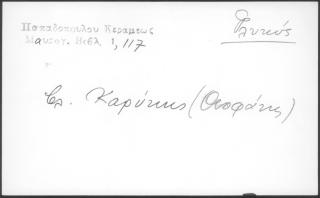 Παπαδοπουλου Κεραμεως
Μαυρογ. Βιβλ 1, 117
Γλυκύς
Βλ. Καρύκης (Θεοφάνης)